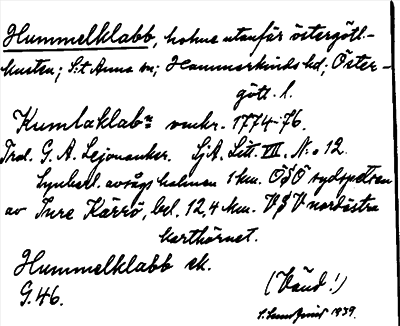 Hummelklabb, holme utanför östergötl-
kusten; S:t Anna sn; Hammarkinds hd; Öster-
götl. l.
Kumlaklabn omkr. 1774-76.
Trol. G. A. Lejonanker. SjA. Litt. VII. N:o 12.
Synbarl. avsågs holmen 1 km. OSO sydspetsen
av Ture Kärrö, bel. 12,4 km. VSV nordöstra
karthörnet.
Hummelklabb ek.
G. 46.
(Vänd!)
1939.